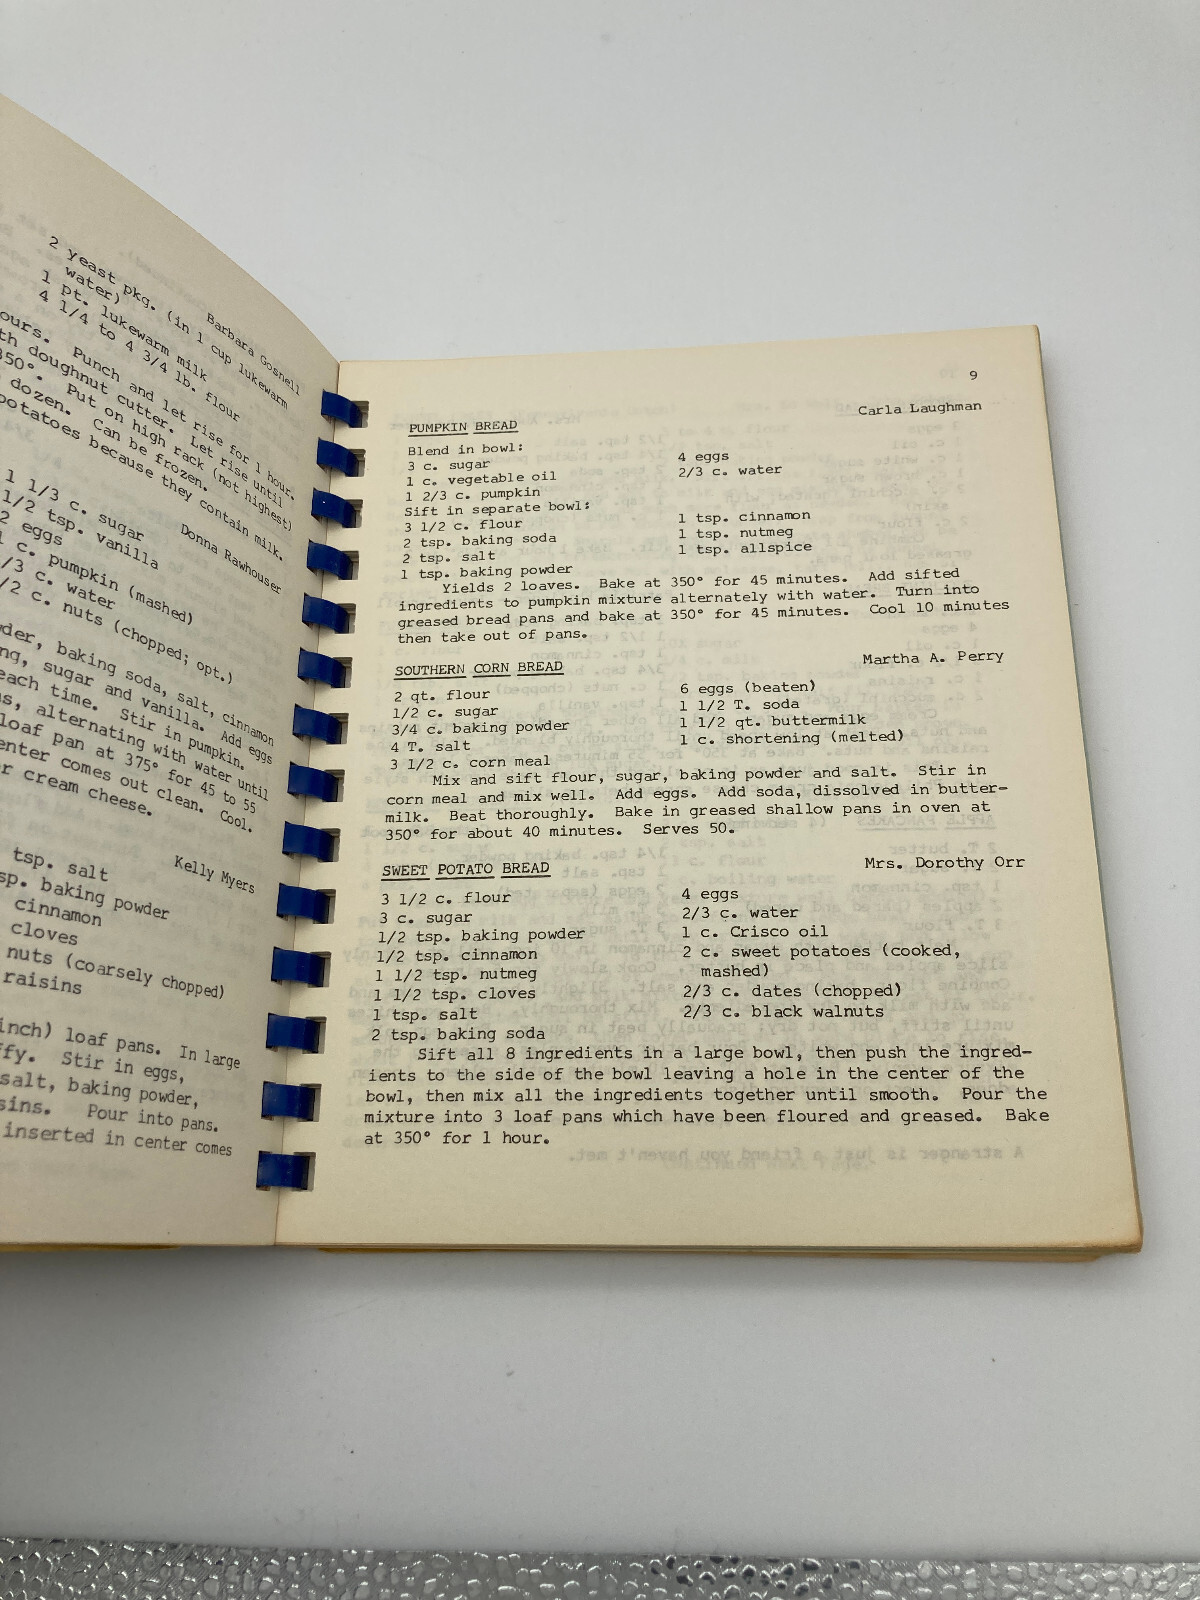 Barbara Gosnell
2 yeast pkg. (in 1 cup lukewarm
water)
1 pt. lukewarm milk
4 1/4 to 4 3/4 lb. flour
ours. Punch and let rise for 1 hour.
th doughnut cutter. Let rise until
350°. Put on high rack (not highest)
dozen. Can be frozen.
potatoes because they contain milk.
Donna Rawhouser
1 1/3 c. sugar
1/2 tsp. vanilla
2 eggs
1 c. pumpkin (mashed)
/3 c. water
/2 c. nuts (chopped; opt.)
der, baking soda, salt, cinnamon
ng, sugar and vanilla. Add eggs
each time. Stir in pumpkin.
s, alternating with water until
loaf pan at 375° for 45 to 55
enter comes out clean. Cool.
r cream cheese.
Kelly Myers
tsp. salt
sp. baking powder
cinnamon
cloves
nuts (coarsely chopped)
raisins
inch) loaf pans. In large
ffy. Stir in eggs,
salt, baking powder,
sins. Pour into pans.
inserted in center comes
9
PUMPKIN BREAD Carla Laughman
Blend in bowl:
3 c. sugar 4 eggs
1 c. vegetable oil 2/3 c. water
1 2/3 c. pumpkin
Sift in separate bowl:
3 1/2 c. flour 1 tsp. cinnamon
2 tsp. baking soda 1 tsp. nutmeg
2 tsp. salt 1 tsp. allspice
1 tsp. baking powder
Yields 2 loaves. Bake at 350° for 45 minutes. Add sifted
ingredients to pumpkin mixture alternately with water. Turn into
greased bread pans and bake at 350° for 45 minutes. Cool 10 minutes
then take out of pans.
SOUTHERN CORN BREAD Martha A. Perry
2 qt. flour 6 eggs (beaten)
1/2 c. sugar 1 1/2 T. soda
3/4 c. baking powder 1 1/2 qt. buttermilk
4 T. salt 1 c. shortening (melted)
3 1/2 c. corn meal
Mix and sift flour, sugar, baking powder and salt. Stir in
corn meal and mix well. Add eggs. Add soda, dissolved in butter-
milk. Beat thoroughly. Bake in greased shallow pans in oven at
350° for about 40 minutes. Serves 50.
SWEET POTATO BREAD Mrs. Dorothy Orr
3 1/2 c. flour 4 eggs
3 c. sugar 2/3 c. water
1/2 tsp. baking powder 1 c. Crisco oil
1/2 tsp. cinnamon 2 c. sweet potatoes (cooked,
1 1/2 tsp. nutmeg mashed)
1 1/2 tsp. cloves 2/3 c. dates (chopped)
1 tsp. salt 2/3 c. black walnuts
2 tsp. baking soda
Sift all 8 ingredients in a large bowl, then push the ingred-
ients to the side of the bowl leaving a hole in the center of the
bowl, then mix all the ingredients together until smooth. Pour the
mixture into 3 loaf pans which have been floured and greased. Bake
at 350° for 1 hour.